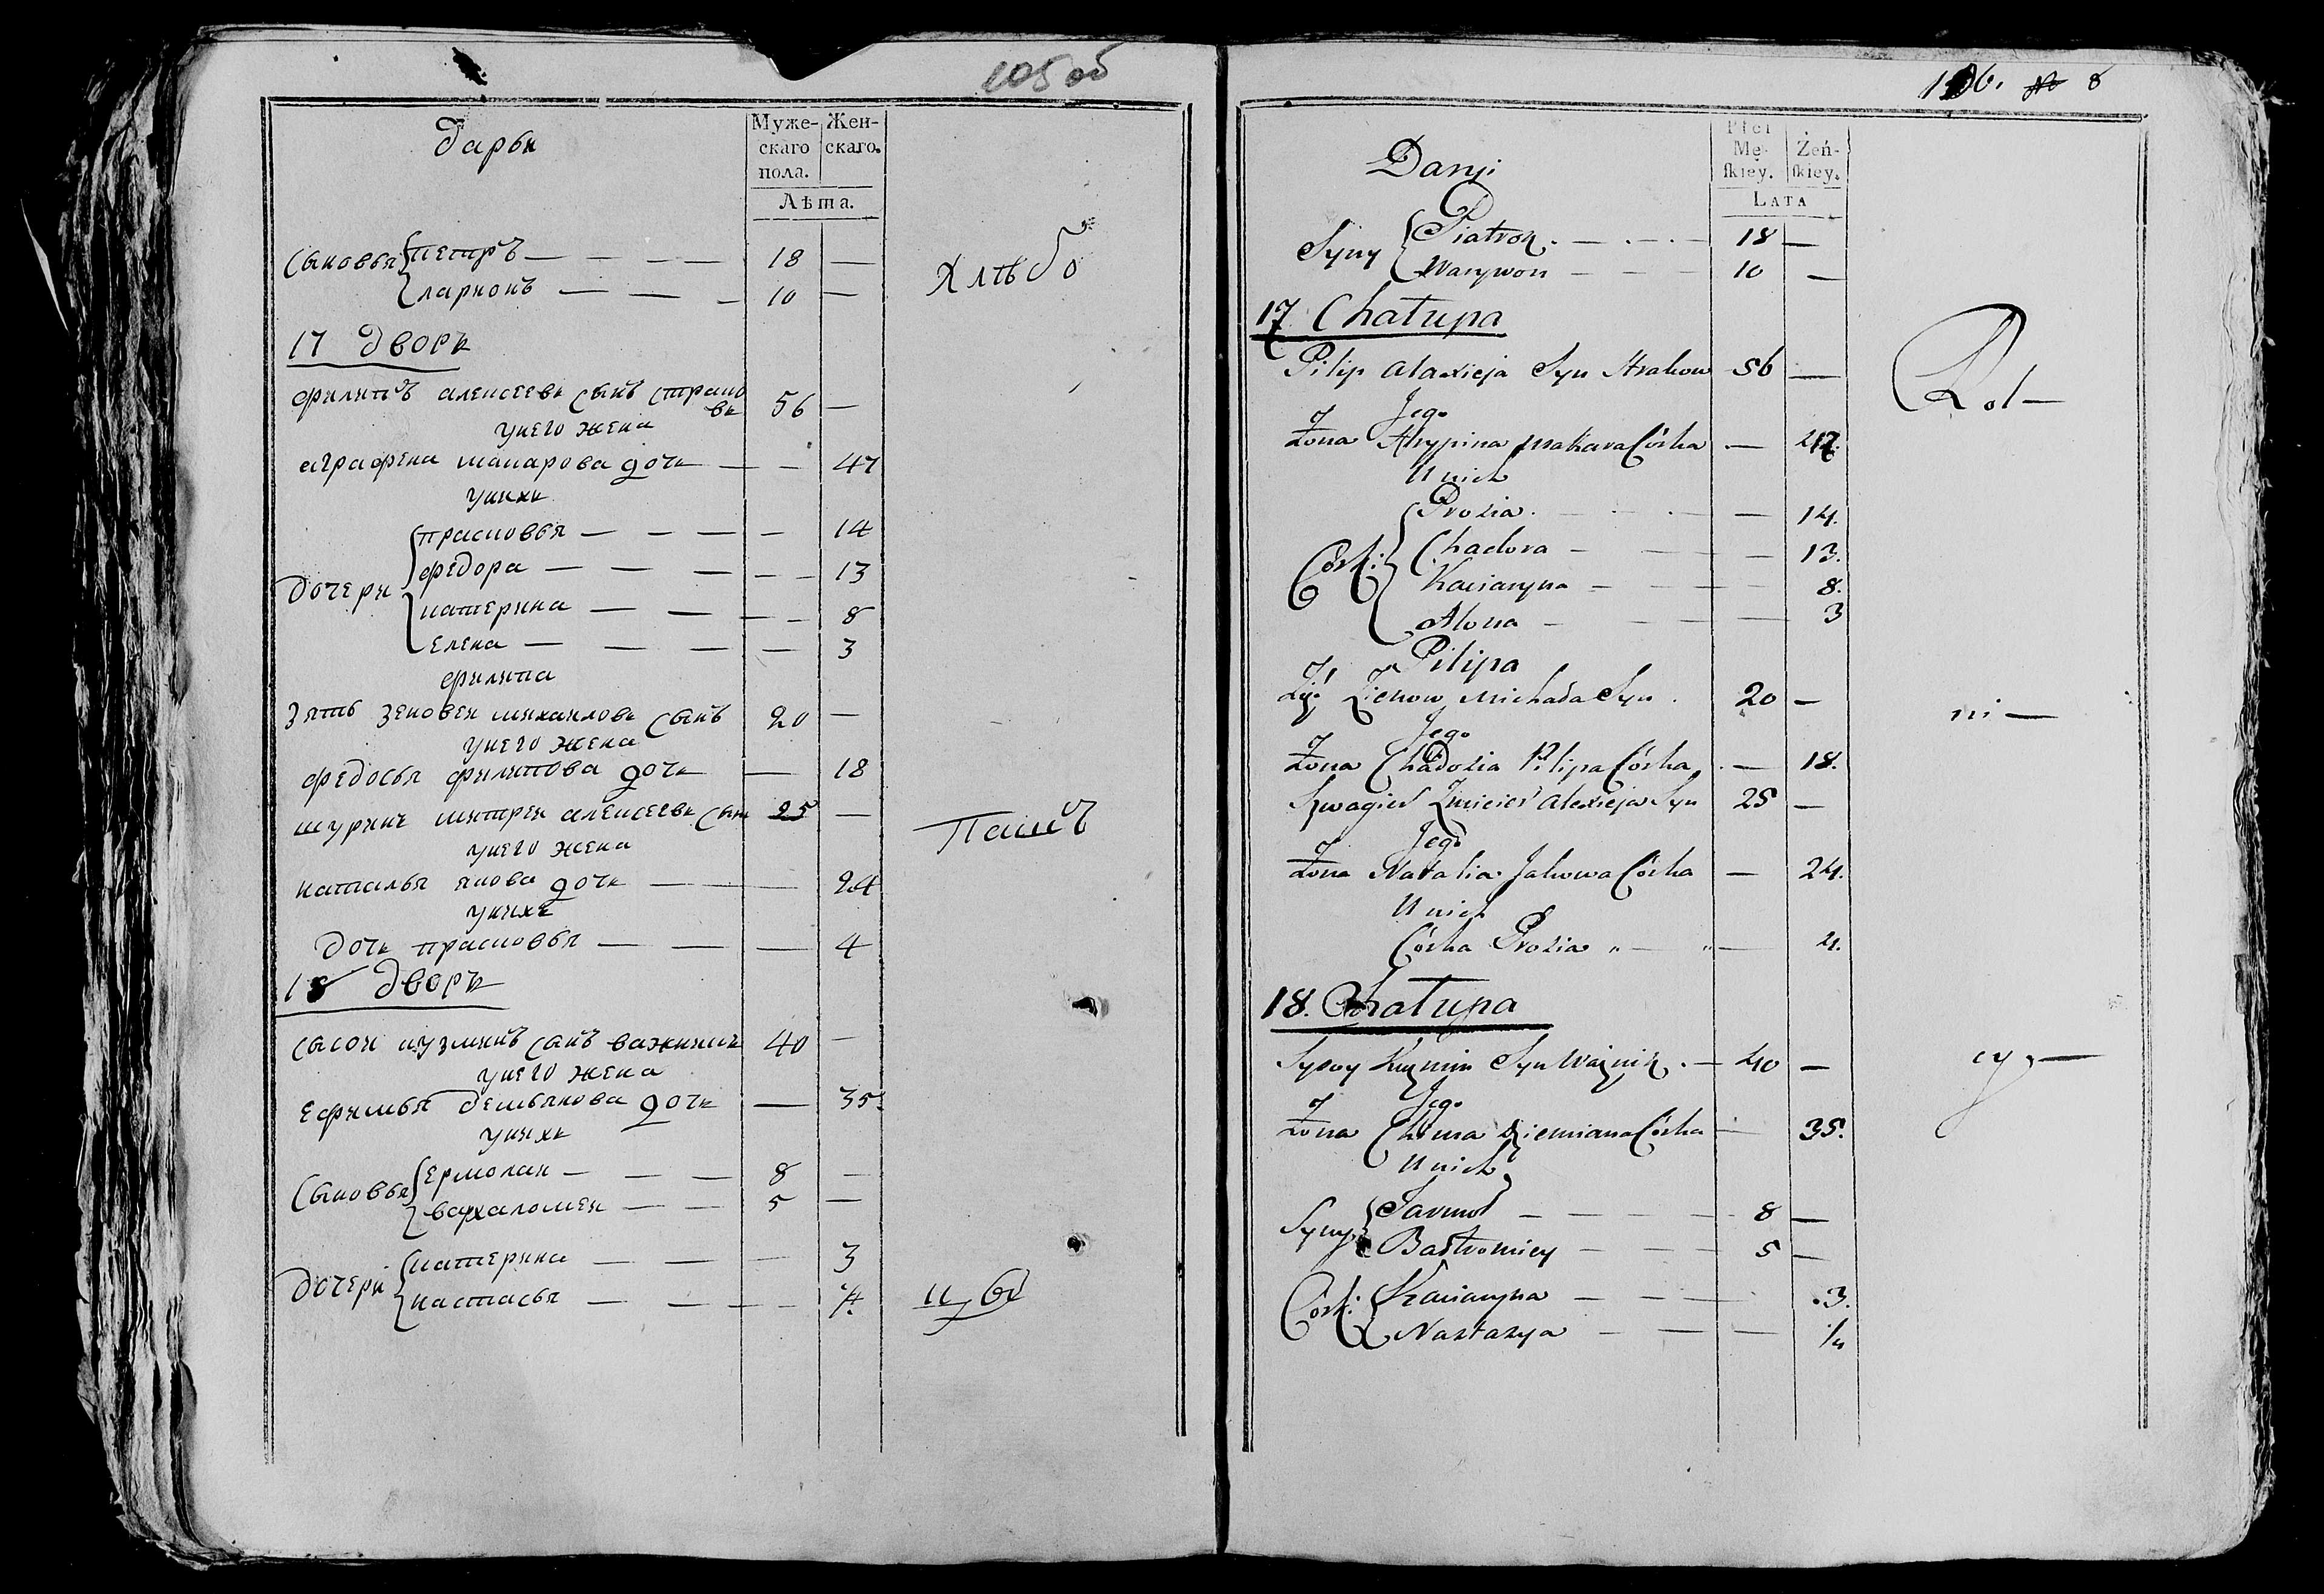 105 об
Дарьи
Муже-
скаго
пола.
Жен-
скаго.
Лѣта.
Сыновья
петръ — — — — 18 —
ларионъ — — — 10 —
Хлѣбо
17 Дворъ
филипъ алексеевъ сынъ страко
въ 56 —
унего жена
аграфена макарова дочь — — 47
унихъ
Дочери
прасковья — — — — 14
федора — — — — — 13
катерина — — — — 8
елена — — — — 3
филипа
зять зеновеи михаиловъ сынъ 20 —
унего жена
федосья филипова дочь — 18
шуринъ митреи алексеевъ сынъ 25 —
унего жена
Пашъ
наталья якова дочь — — 24
унихъ
Дочь прасковья — — — 4
18 Дворъ
сысои кузминъ сынъ важникъ 40 —
унего жена
ефимья демьянова дочь — 35
унихъ
Сыновья
ермолаи — — — 8 —
вархаломеи — — 5 —
Дочери
катерина — — — 3
настасья — — — —
цы
106. № 8
Płci
Mę-
ſkiey.
Żeń-
ſkiey.
Lata
Daryi
Syny
Piatrok — — 18 —
Warywon — — 10 —
17 Chałupa
Pilip Alaxieja Syn Strakow 56 —
Rol—
Jego
Żona Ahypina Makara Córka — 47.
U nich
Córki:
Prosia — — — 14.
Chadora — — — 13.
Kaciaryna — — — 8.
Alona — — — 3
Pilipa
Zienow Michała Syn 20 —
ni—
Jego
Żona Chadosia Pilipa Córka — 18.
Szwagier Zmicier Alexieja Syn 25 —
Jego
Żona Natalia Jakowa Córka — 24.
U nich
Córka Prosia — — 4.
18. Chałupa
Sysoy Kuzmin Syn Ważnik — 40 —
cy,—
Jego
Żona Chima Dziemiana Córka — 35.
U nich
Syny
Jarmoł — — — 8 —
Bałtromiey — — — 5 —
Córki:
Kaciaryna — — — 3.
Nastasya — — — 1/4